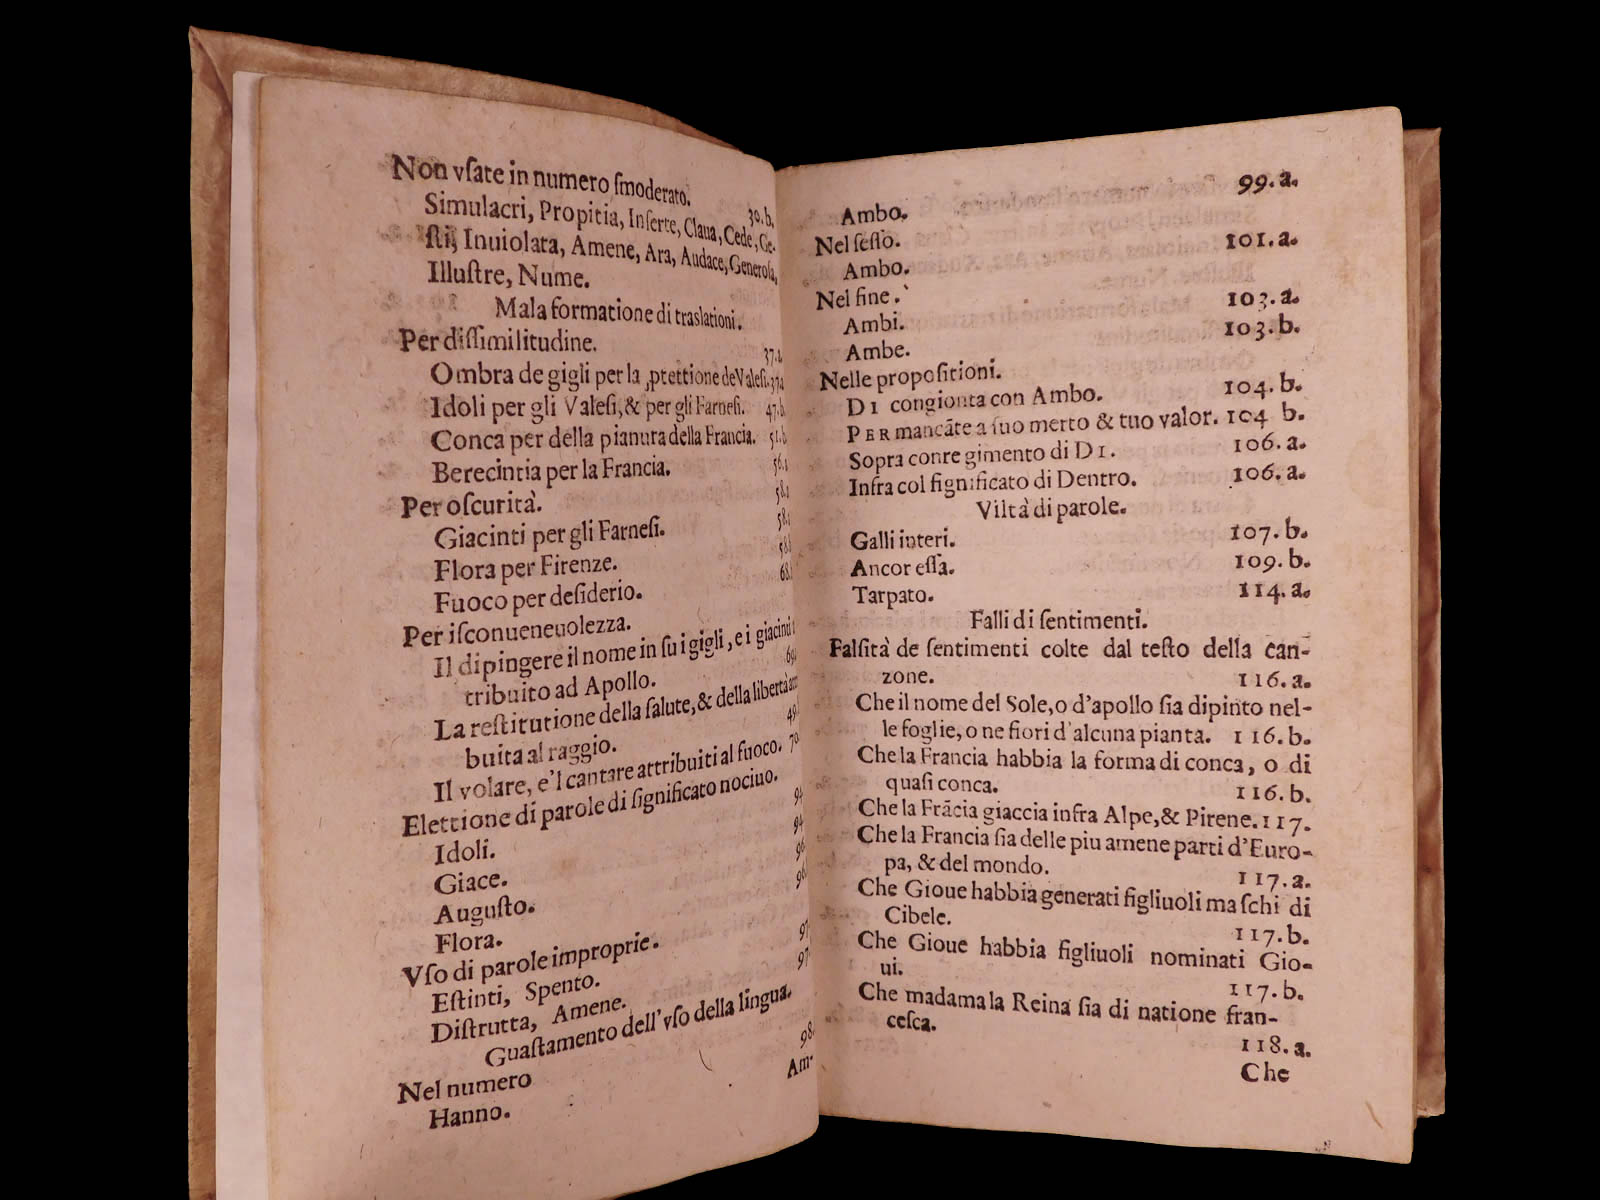 Non vſate in numero ſmoderato. 30. b.
Simulacri, Propitia, Inſerte, Claua, Cede, Ge-
ſti, Inuiolata, Amene, Ara, Audace, Generoſa,
Illuſtre, Nume.
Mala formatione di traslationi.
Per diſſimilitudine. 37.
Ombra de gigli per la ꝓtettione de Valeſi. 37
Idoli per gli Valeſi, & per gli Farneſi. 47. b.
Conca per della pianura della Francia. 51. b
Berecintia per la Francia. 56.
Per oſcurità. 58.
Giacinti per gli Farneſi. 58.
Flora per Firenze. 58.
Fuoco per deſiderio. 68.
Per iſconueneuolezza.
Il dipingere il nome in ſu i gigli, e i giacinti
tribuito ad Apollo. 69.
La reſtitutione della ſalute, & della libertà
buita al raggio. 49.
Il volare, e'l cantare attribuiti al fuoco. 70
Elettione di parole di ſignificato nociuo.
Idoli. 94
Giace. 94
Auguſto. 96
Flora. 96
Vſo di parole improprie.
Eſtinti, Spento. 97
Diſtrutta, Amene. 97
Guaſtamento dell'vſo della lingua.
Nel numero 98.
Hanno. Am-
99. a.
Ambo.
Nel ſeſto. 101. a.
Ambo.
Nel fine. 103. a.
Ambi. 103. b.
Ambe.
Nelle propoſitioni.
DI congionta con Ambo. 104. b.
PER mancāte a ſuo merto & tuo valor. 104 b.
Sopra con re gimento di DI. 106. a.
Infra col ſignificato di Dentro. 106. a.
Viltà di parole.
Galli interi. 107. b.
Ancor eſſa. 109. b.
Tarpato. 114. a.
Falli di ſentimenti.
Falſità de ſentimenti colte dal teſto della can-
zone. 116. a.
Che il nome del Sole, o d'apollo ſia dipinto nel-
le foglie, o ne fiori d'alcuna pianta. 116. b.
Che la Francia habbia la forma di conca, o di
quaſi conca. 116. b.
Che la Frācia giaccia infra Alpe, & Pirene. 117.
Che la Francia ſia delle piu amene parti d'Euro-
pa, & del mondo. 117. a.
Che Gioue habbia generati figliuoli maſchi di
Cibele. 117. b.
Che Gioue habbia figliuoli nominati Gio-
ui. 117. b.
Che madama la Reina ſia di natione fran-
ceſca. 118. a.
Che